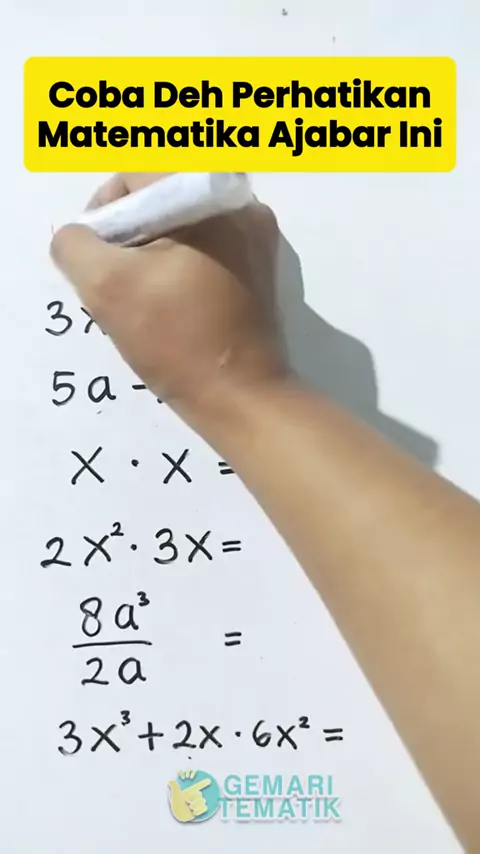 Coba Deh Perhatikan
Matematika Ajabar Ini
3x
5a -
x · x =
2x² · 3x =
8a³
2a
=
3x³ + 2x · 6x² =
GEMARI
TEMATIK